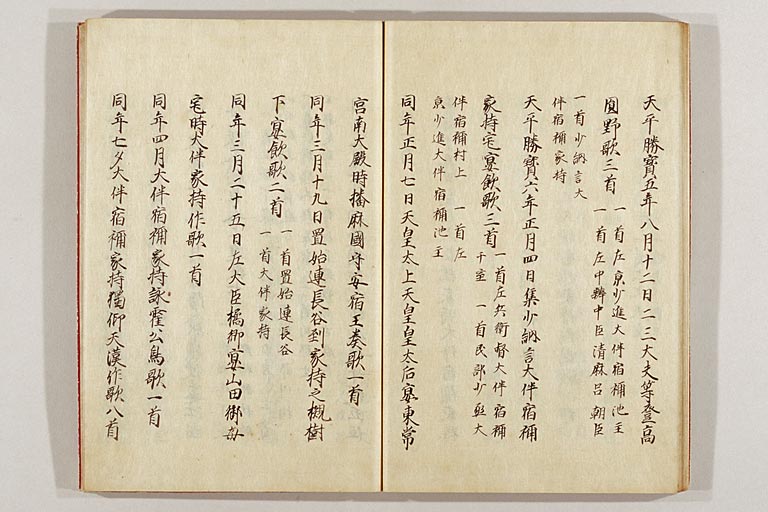 天平勝寳五年八月十二日二三大夫等登高
圓野歌三首
一首左京少進大伴宿祢池主
一首左中辨中臣清麻呂朝臣
一首少納言大
伴宿祢家持
天平勝寳六年正月四日集少納言大伴宿祢
家持宅宴飲歌三首
一首左兵衛督大伴宿祢
千室 一首民部少丞大
伴宿祢村上 一首左
京少進大伴宿祢池主
同年正月七日天皇太上天皇皇太后宴東常
宮南大殿時播麻國守安宿王奏歌一首
同年三月十九日置始連長谷到家持之槻樹
下宴飲歌二首
一首置始連長谷
一首大伴家持
同年三月二十五日左大臣橘卿宴山田御母
宅時大伴家持作歌一首
同年四月大伴宿祢家持詠霍公鳥歌一首
同年七夕大伴宿祢家持獨仰天漢作歌八首